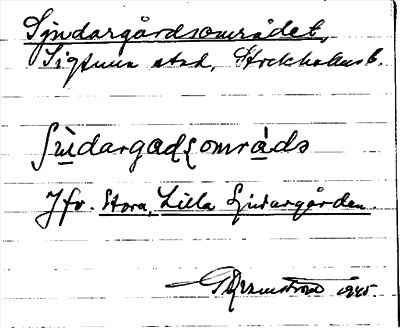 Sjudargårdsområdet,
Sigtuna stad, Stockholms l.
ʃùdargadʒområds
Jfr. Stora, Lilla Sjudargården.
1945.